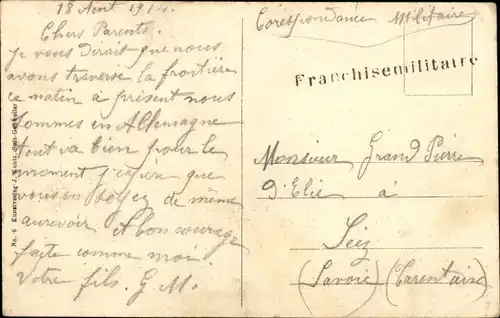 18 Aout 1914.
Chers Parents.
je vous dirais que nous
avons traverse la frontière
ce matin à présent nous
sommes en Allemagne
tout va bien pour le
moment j'espère que
vous en soyez de même
aurevoir A bon courage
faite comme moi
Votre fils. G M.
No. 6 Kunstverlag J.
Corespondance Militaire
Franchisemilitaire
Monsieur Grand Pierre
d'Elie à
Séez
(Savoie) (Tarentaise)